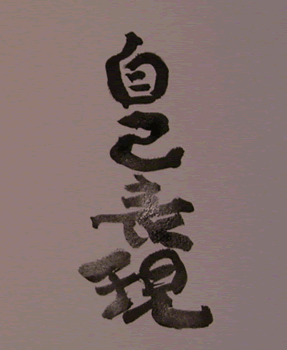 自己表現